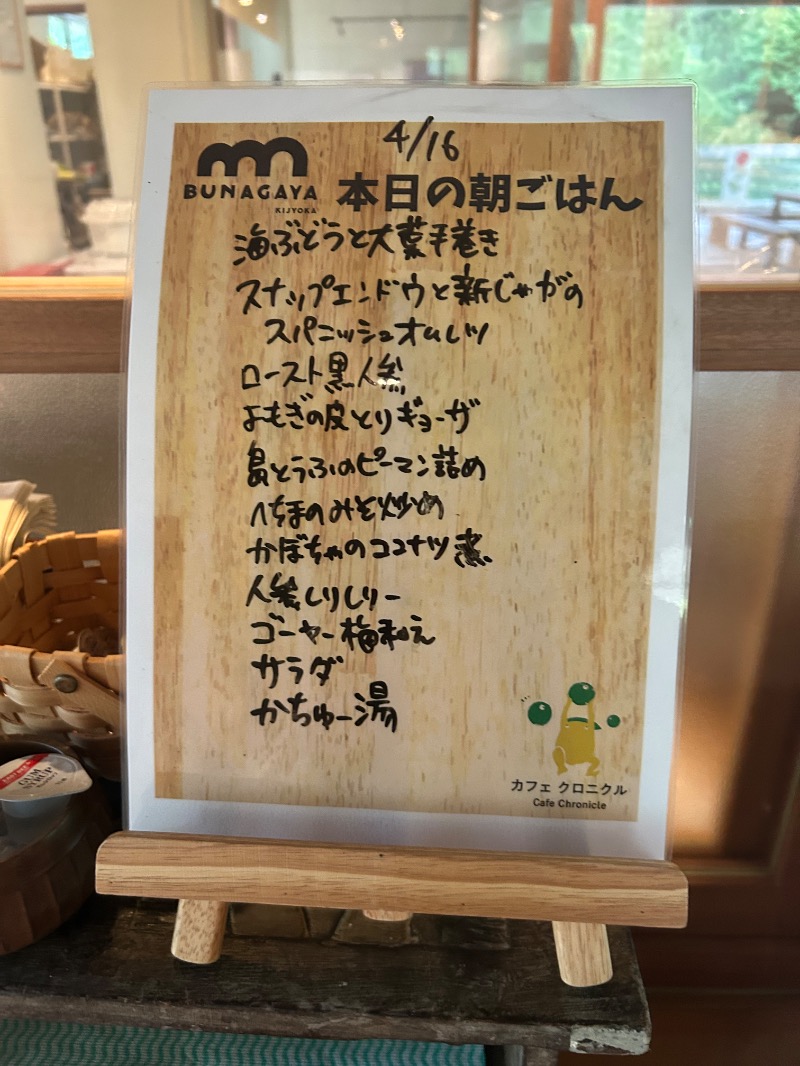 4/16
BUNAGAYA
KIJYOKA
本日の朝ごはん
海ぶどうと大葉手巻き
スナップエンドウと新じゃがの
スパニッシュオムレツ
ロースト黒人参
よもぎの皮とりギョーザ
島とうふのピーマン詰め
へちまのみそ炒め
かぼちゃのココナツ煮
人参しりしりー
ゴーヤー梅和え
サラダ
かちゅー湯
カフェ クロニクル
Cafe Chronicle
GUM
SYRUP